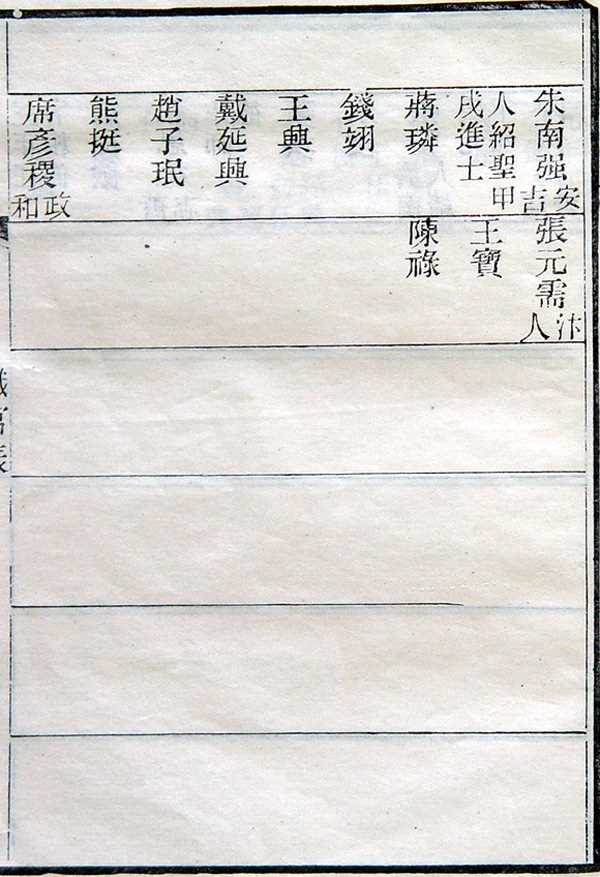 朱南强安吉
人紹聖甲
戌進士
蔣璘
錢翊
王興
戴延興
趙子珉
熊挺
席彥稷政和
張元需汴人
王寶
陳祿